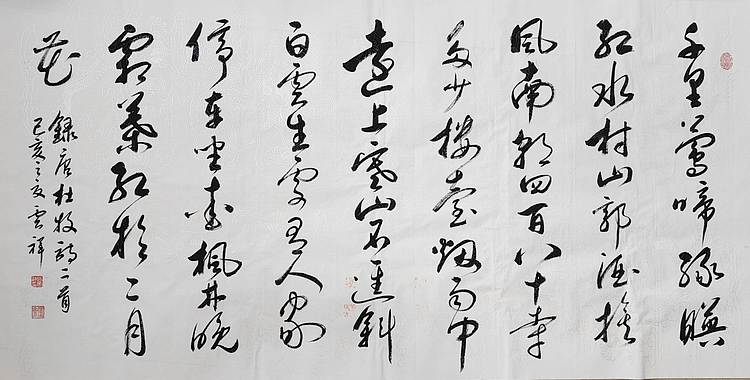 千里鶯啼綠暎
紅水村山郭酒旗
風南朝四百八十寺
多少樓臺烟雨中
遠上寒山石逕斜
白雲生處有人家
停車坐愛楓林晚
霜葉紅於二月
花
録唐杜牧詩二首
己亥之夏雲祥